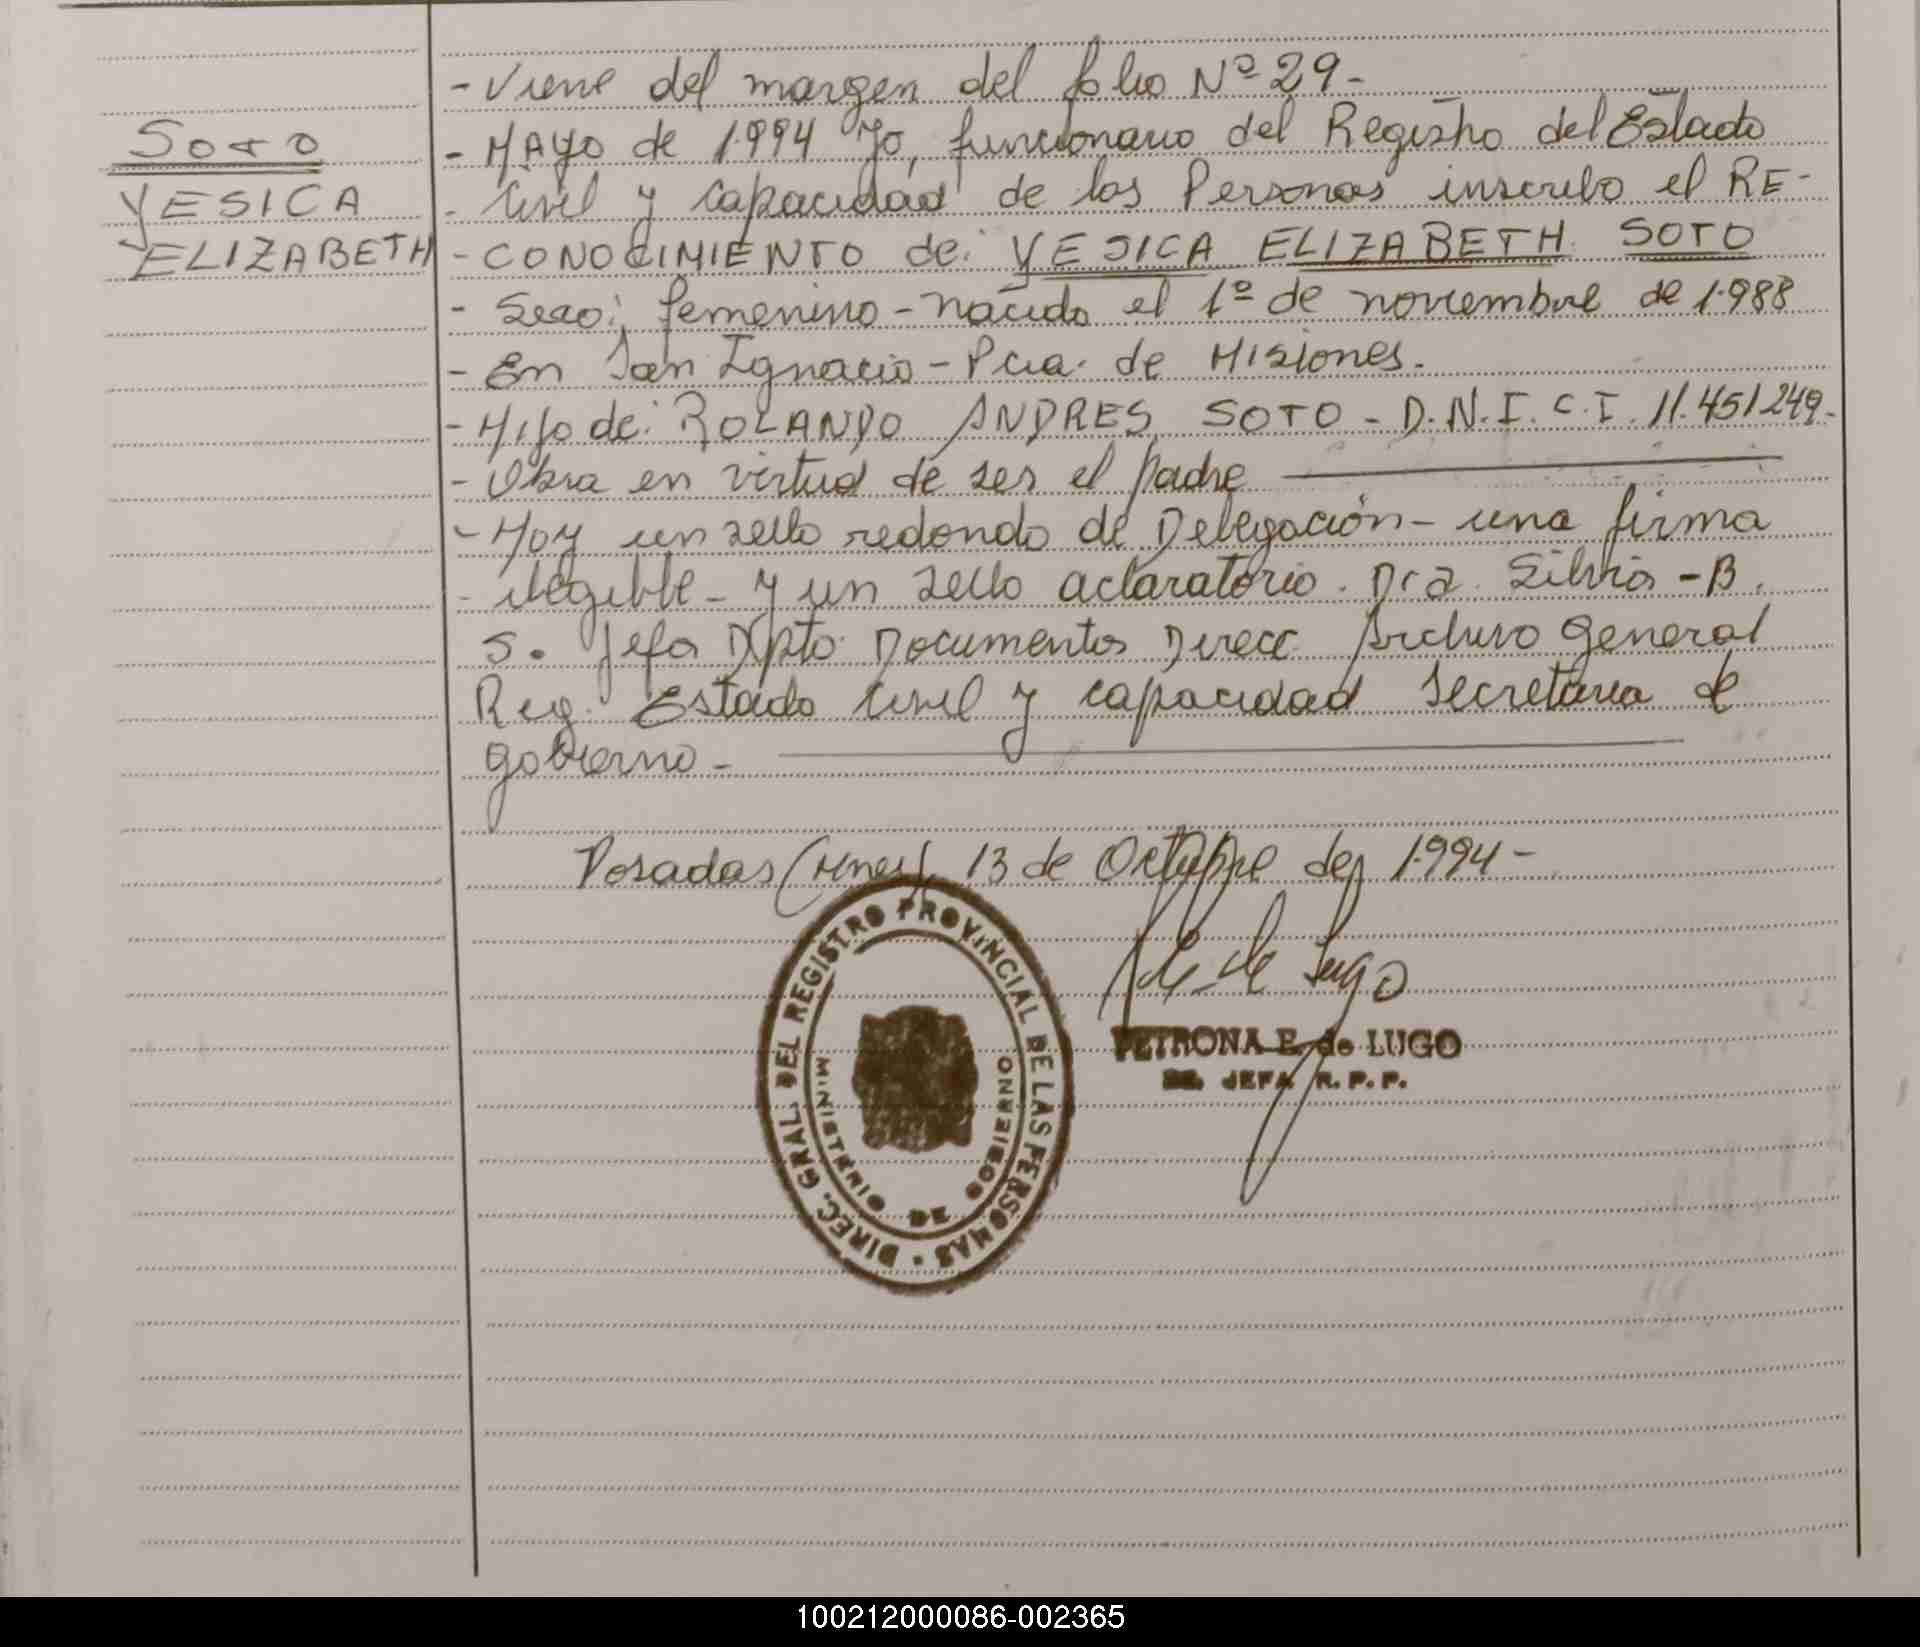 SOTO
YESICA
ELIZABETH
- Viene del margen del folio Nº 29-
- MAYO de 1.994 Yo, funcionario del Registro del Estado
- Civil y Capacidad de las Personas inscribo el RE-
- CONOCIMIENTO de: YESICA ELIZABETH SOTO
- Sexo: femenino - nacido el 1º de noviembre de 1.988
- En San Ignacio - Pcia. de Misiones.
- Hijo de: ROLANDO ANDRES SOTO - D.N.I. C.I. 11.451249-
- Obra en virtud de ser el padre
- Hay un sello redondo de Delegación - una firma
- ilegible - y un sello aclaratorio. Dra. Silvia - B.
S. Jefa Dpto. Documentos Direcc. Archivo General
Reg. Estado Civil y capacidad Secretaria de
gobierno -
Posadas (Mnes), 13 de Octubre de 1.994-
DIREC. GRAL. DEL REGISTRO PROVINCIAL DE LAS PERSONAS
MINISTERIO DE GOBIERNO
de Lugo
PETRONA E. de LUGO
JEFA R. P. P.
100212000086-002365